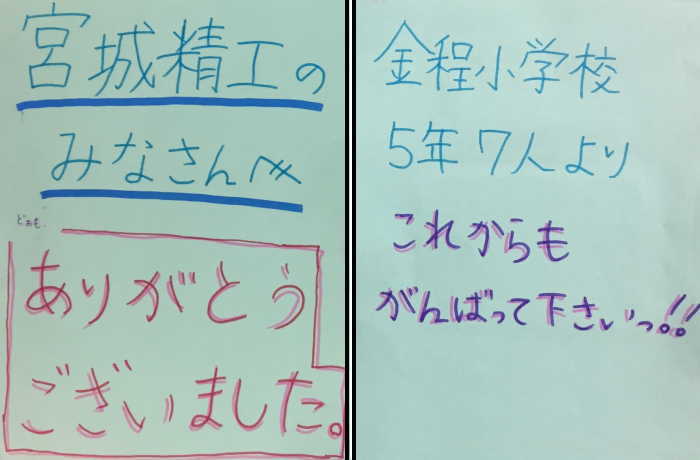 宮城精工の
みなさんへ
どぉも
ありがとう
ございました。
金程小学校
5年7人より
これからも
がんばって下さいっ。。!!